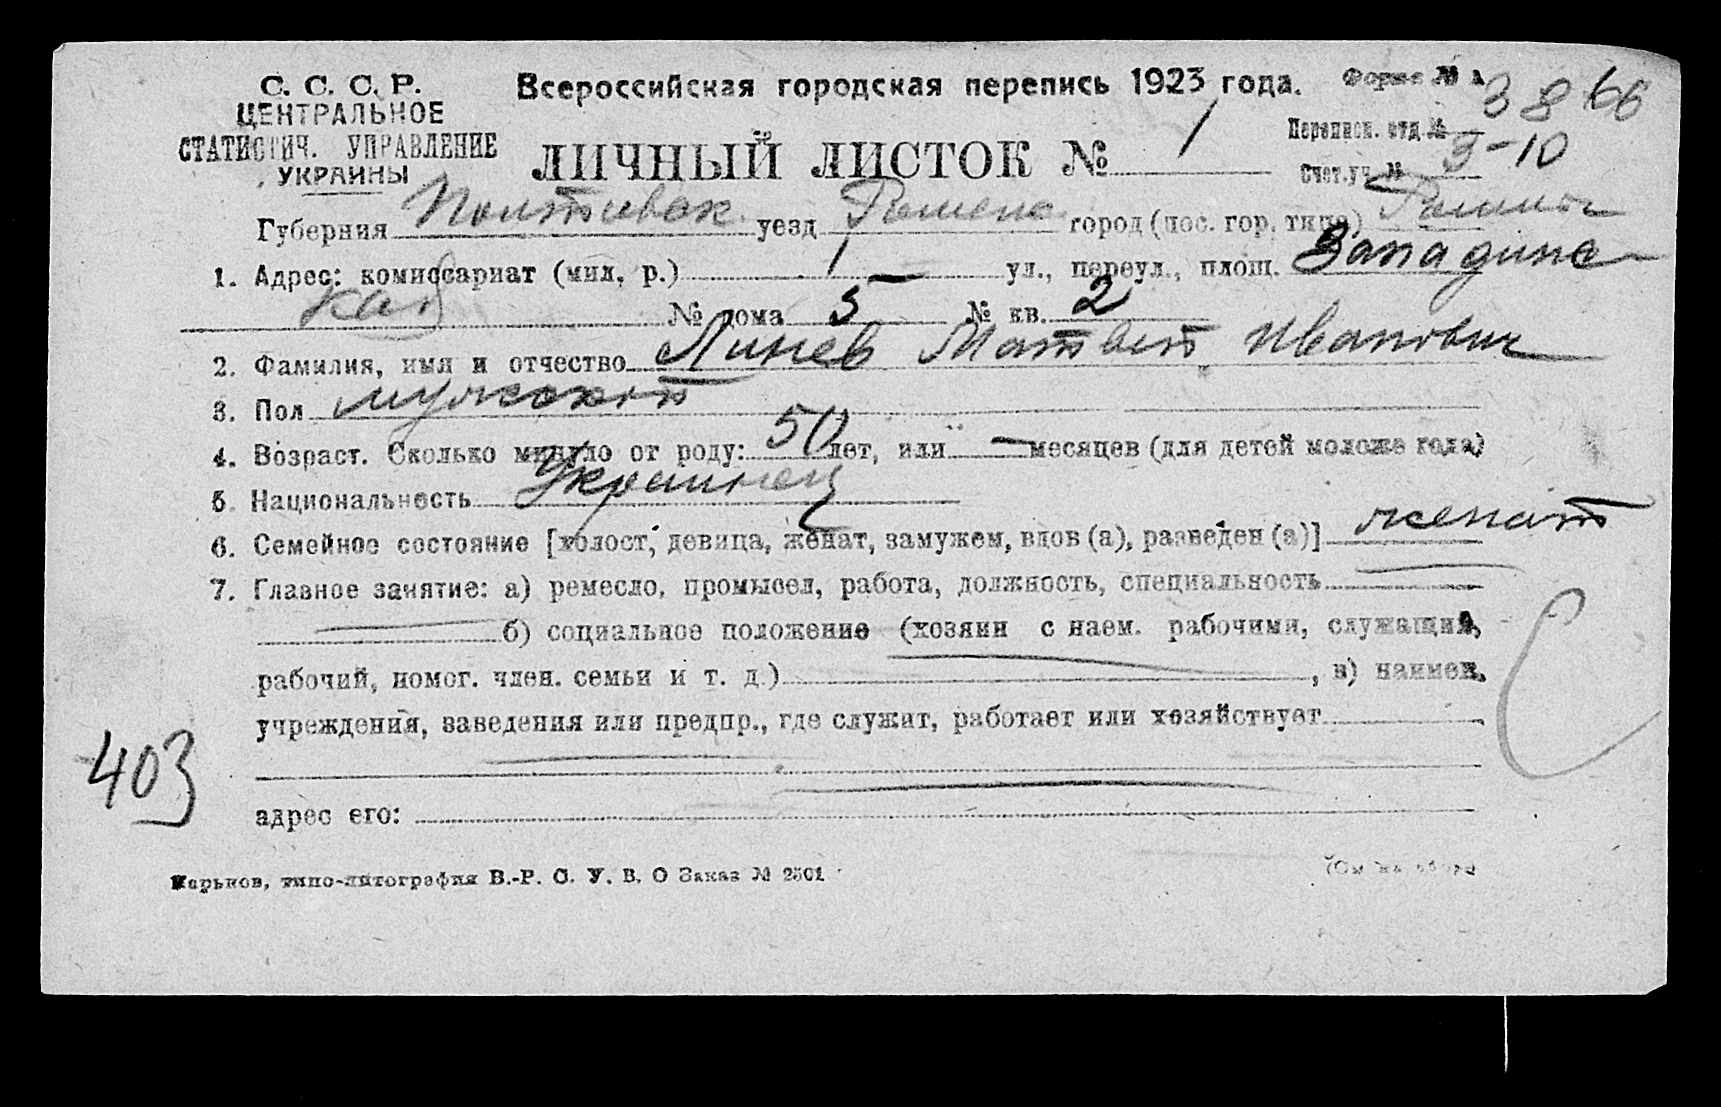 С. С. С. Р.
ЦЕНТРАЛЬНОЕ
СТАТИСТИЧ. УПРАВЛЕНИЕ
УКРАИНЫ
Всероссийская городская перепись 1923 года.
Форма № 1
38 66
ЛИЧНЫЙ ЛИСТОК № 1
Переписн. отд. №
3-10
Счет. уч. №
Губерния Полтавск. уезд Роменс город (пос. гор. типа) Ромны
1. Адрес: комиссариат (мил. р.) 1 ул., переул., площ. Западинс
кая № дома 5 № кв. 2
2. Фамилия, имя и отчество Линев Матвей Иванович
3. Пол мужской
4. Возраст. Сколько минуло от роду: 50 лет, или — месяцев (для детей моложе года)
5. Национальность Украинец
6. Семейное состояние [холост, девица, женат, замужем, вдов (а), разведен (а)] женат
7. Главное занятие: а) ремесло, промысел, работа, должность, специальность
б) социальное положение (хозяин с наем. рабочими, служащий,
рабочий, помог. член. семьи и т. д.) , в) наимен.
учреждения, заведения или предпр., где служит, работает или хозяйствует
403
адрес его:
Харьков, типо-литография В.-Р. С. У. В. О Заказ № 2501
(См на обор